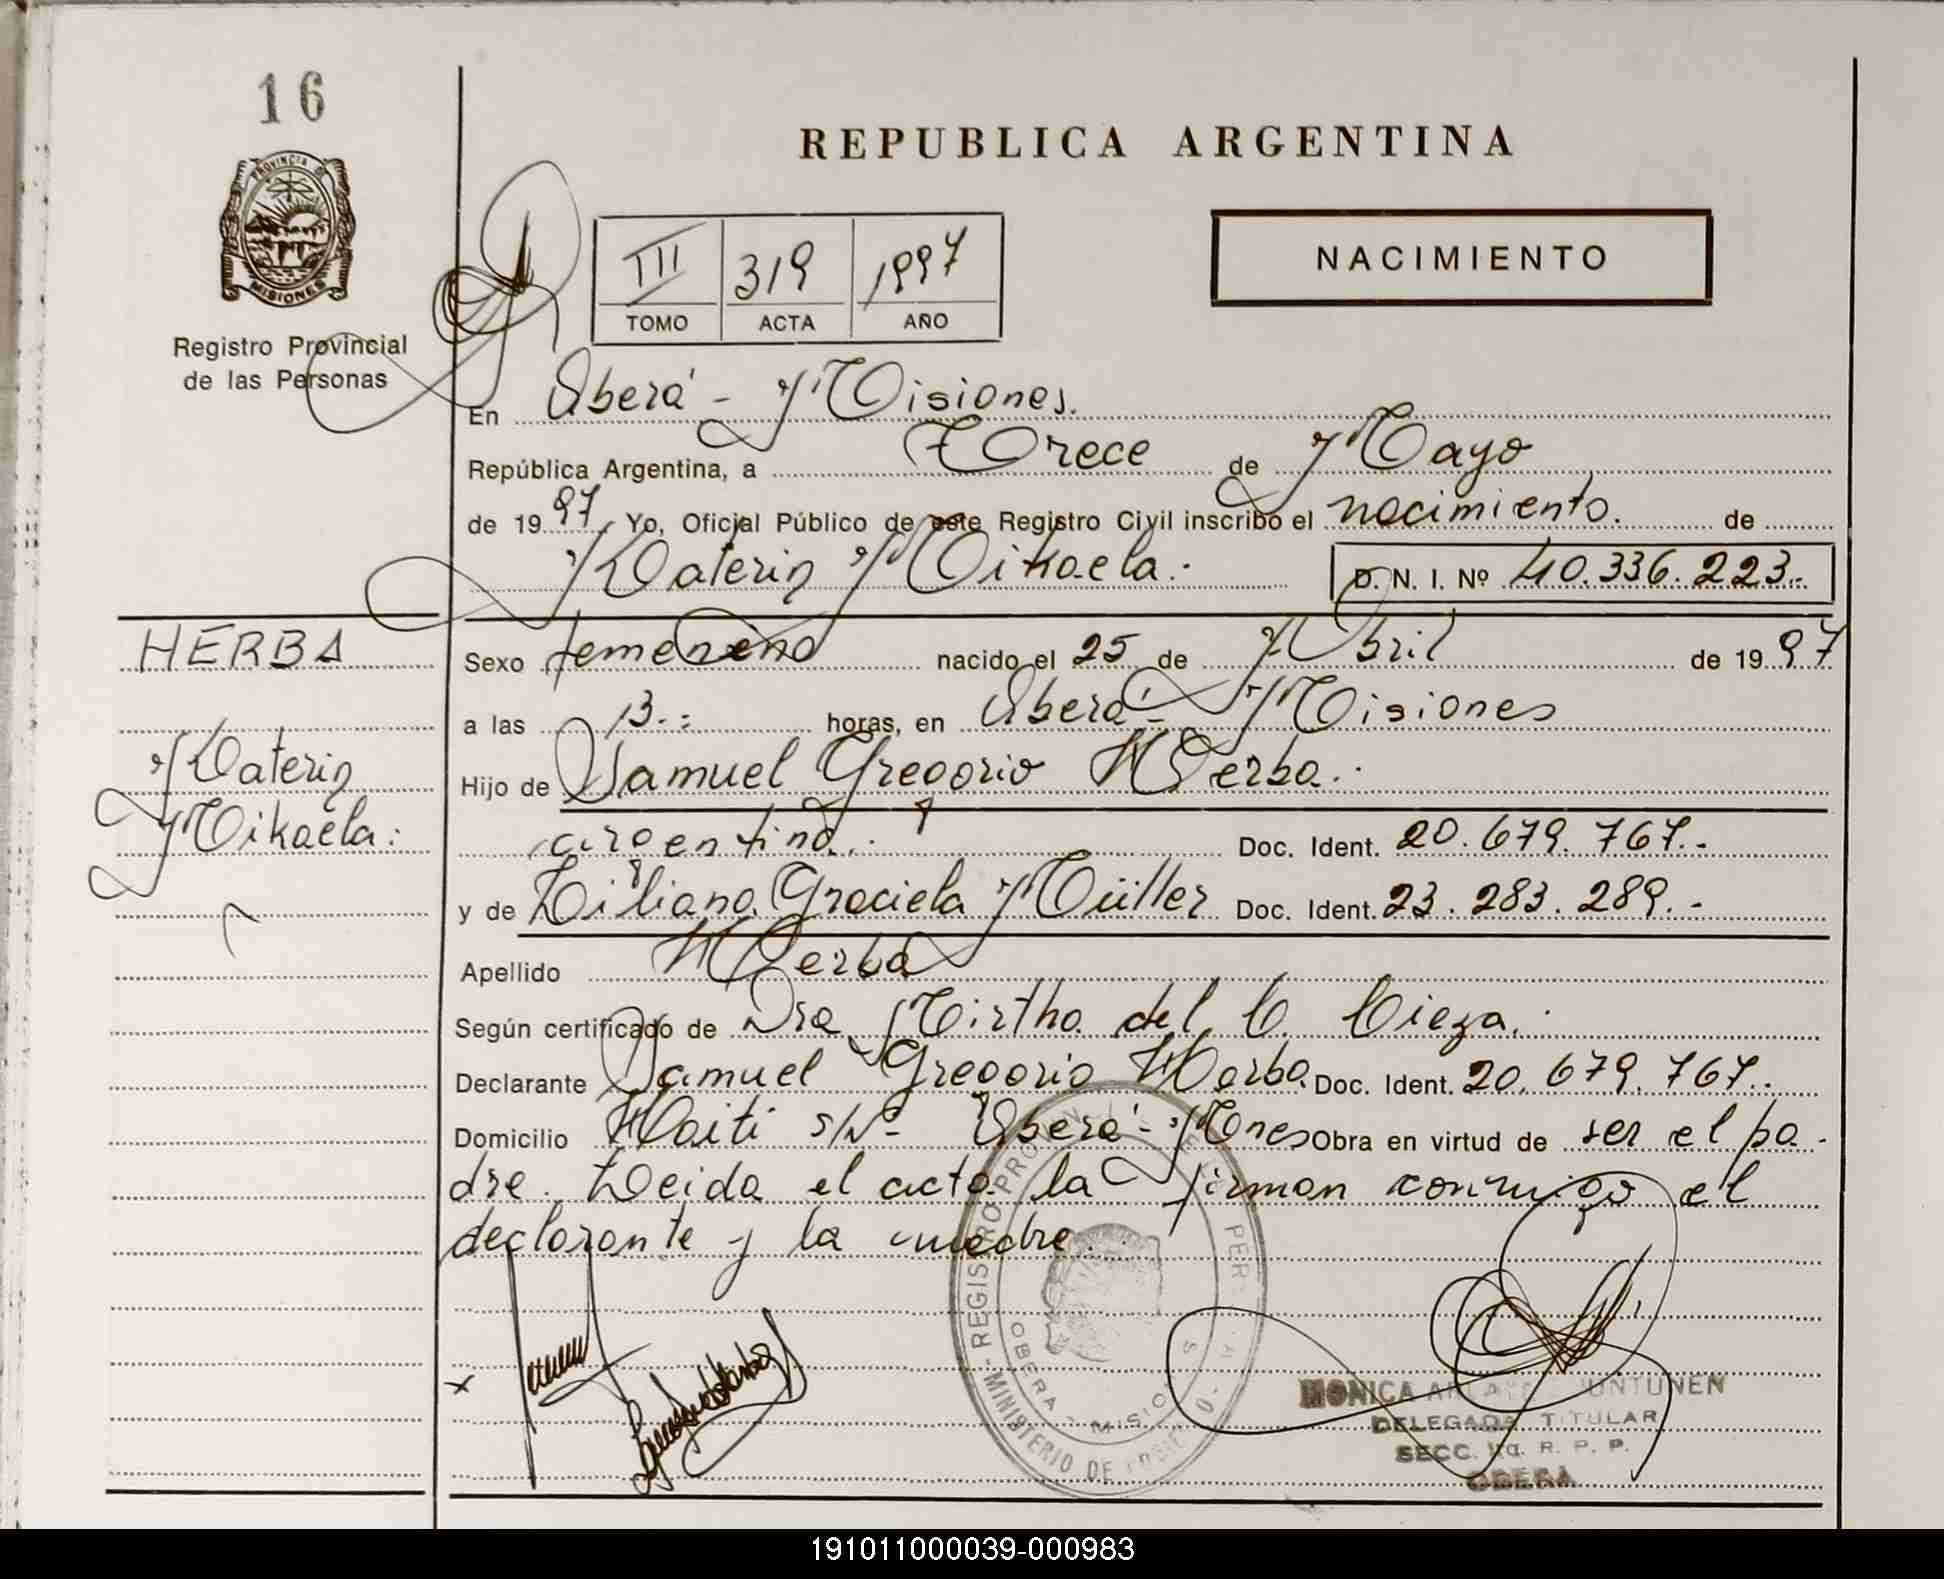 16
REPUBLICA ARGENTINA
PROVINCIA D
MISIONES
Registro Provincial
de las Personas
III 319 1997
TOMO ACTA AÑO
NACIMIENTO
En Oberá - Misiones.
República Argentina, a Trece de Mayo
de 1997, Yo, Oficial Público de este Registro Civil inscribo el nacimiento. de
Katerin Mikaela.- D. N. I. Nº 40.336.223.-
HERBA
Katerin
Mikaela:
Sexo femenino nacido el 25 de Abril de 1997
a las 13.- horas, en Oberá - Misiones
Hijo de Samuel Gregorio Herba.-
argentino.- Doc. Ident. 20.679.767.-
y de Liliana Graciela Müller Doc. Ident. 23.283.289.-
Apellido Herba
Según certificado de Dra Mirtha del C. Cieza.-
Declarante Samuel Gregorio Herba. Doc. Ident. 20.679.767.-
Domicilio Haiti s/Nº - Oberá - Mnes Obra en virtud de ser el pa-
dre. Leida el acta la firman conmigo el
declarante y la madre.
REGISTRO PROVIN PER
OBERA - MISIO S
MINISTERIO DE GO
MONICA JUNTUNEN
DELEGADA TITULAR
SECC. R. P. P.
OBERA
191011000039-000983